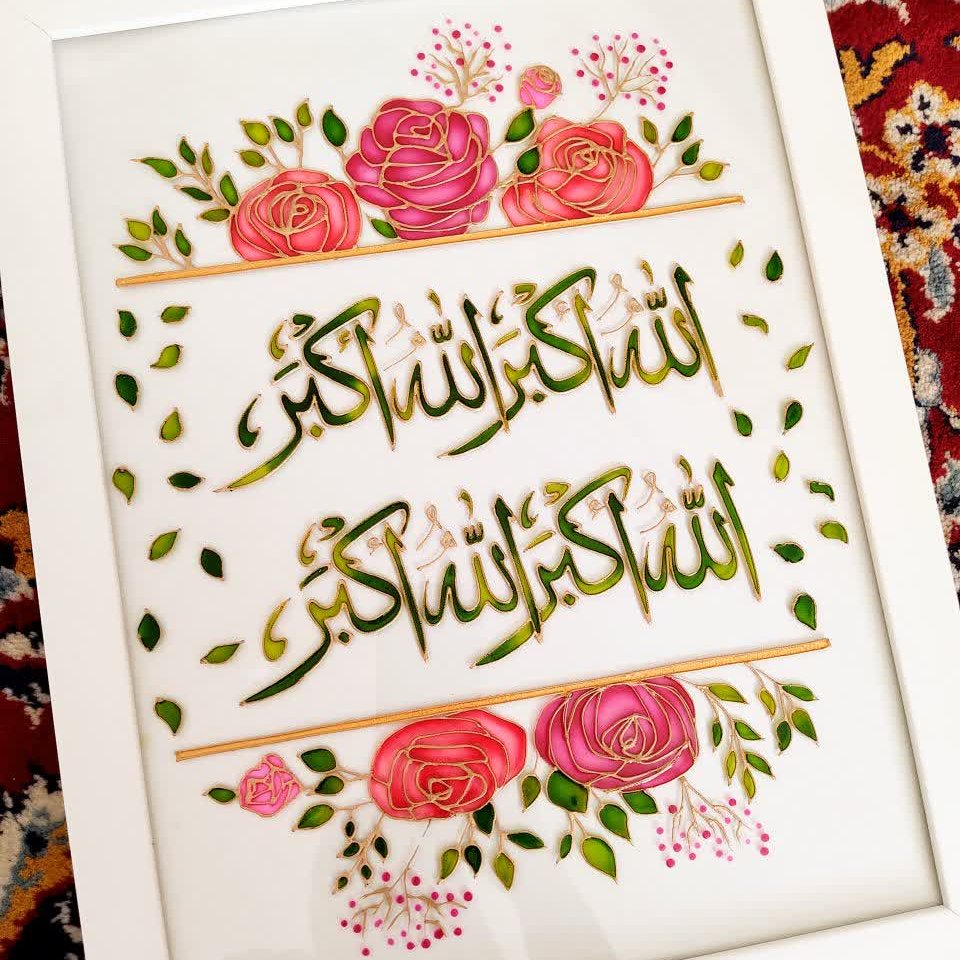 اللهُ أَكْبَرَ اللهُ أَكْبَرَ
اللهُ أَكْبَرَ اللهُ أَكْبَرَ